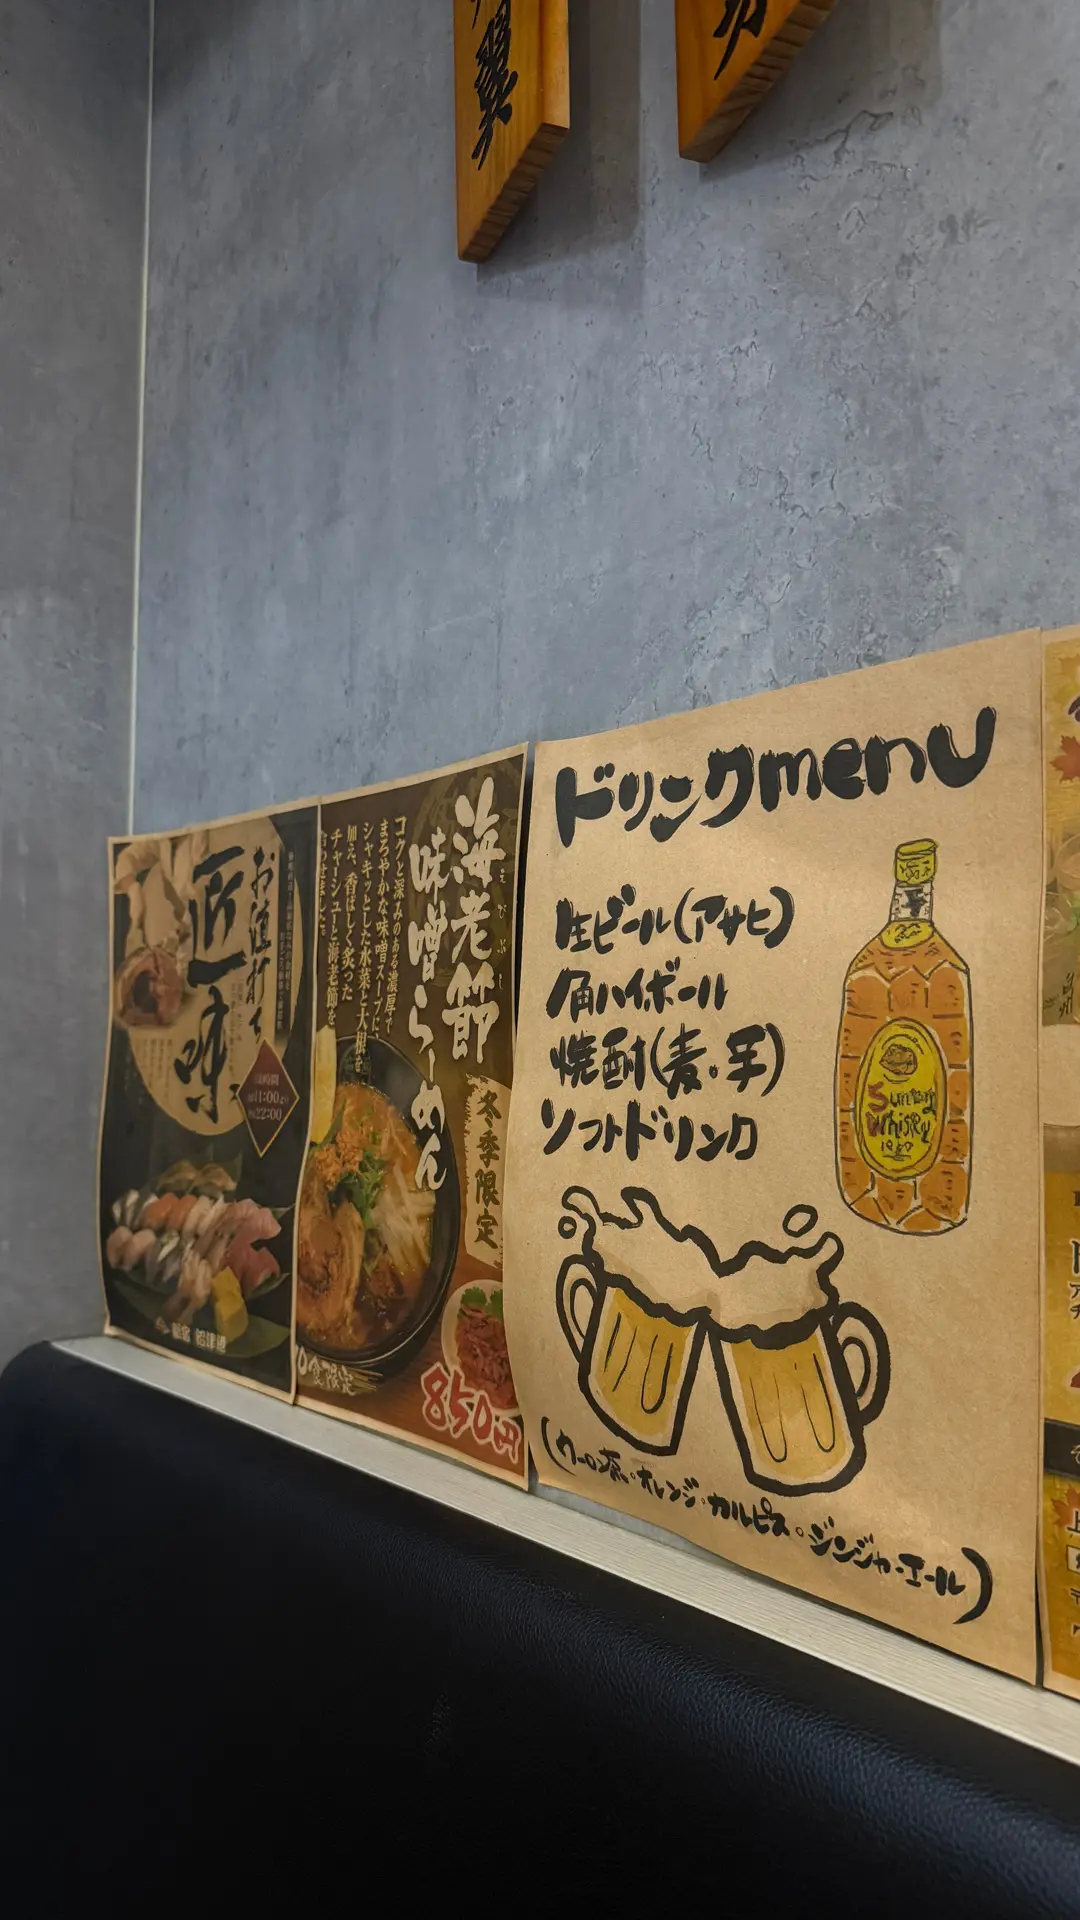 翼
お値打ち
匠味
営業時間
11:00より
22:00
海老節
えびぶし
味噌らーめん
コクと深みのある濃厚で
まろやかな味噌スープに、
シャキッとした水菜と大根を
加え、香ばしく炙った
チャーシューと海老節を
合わせました。
冬季限定
10食限定
850円
ドリンクmenu
生ビール(アサヒ)
角ハイボール
焼酎(麦・芋)
ソフトドリンク
Suntory
Whisky
1937
(ウーロン茶・オレンジ・カルピス・ジンジャーエール)